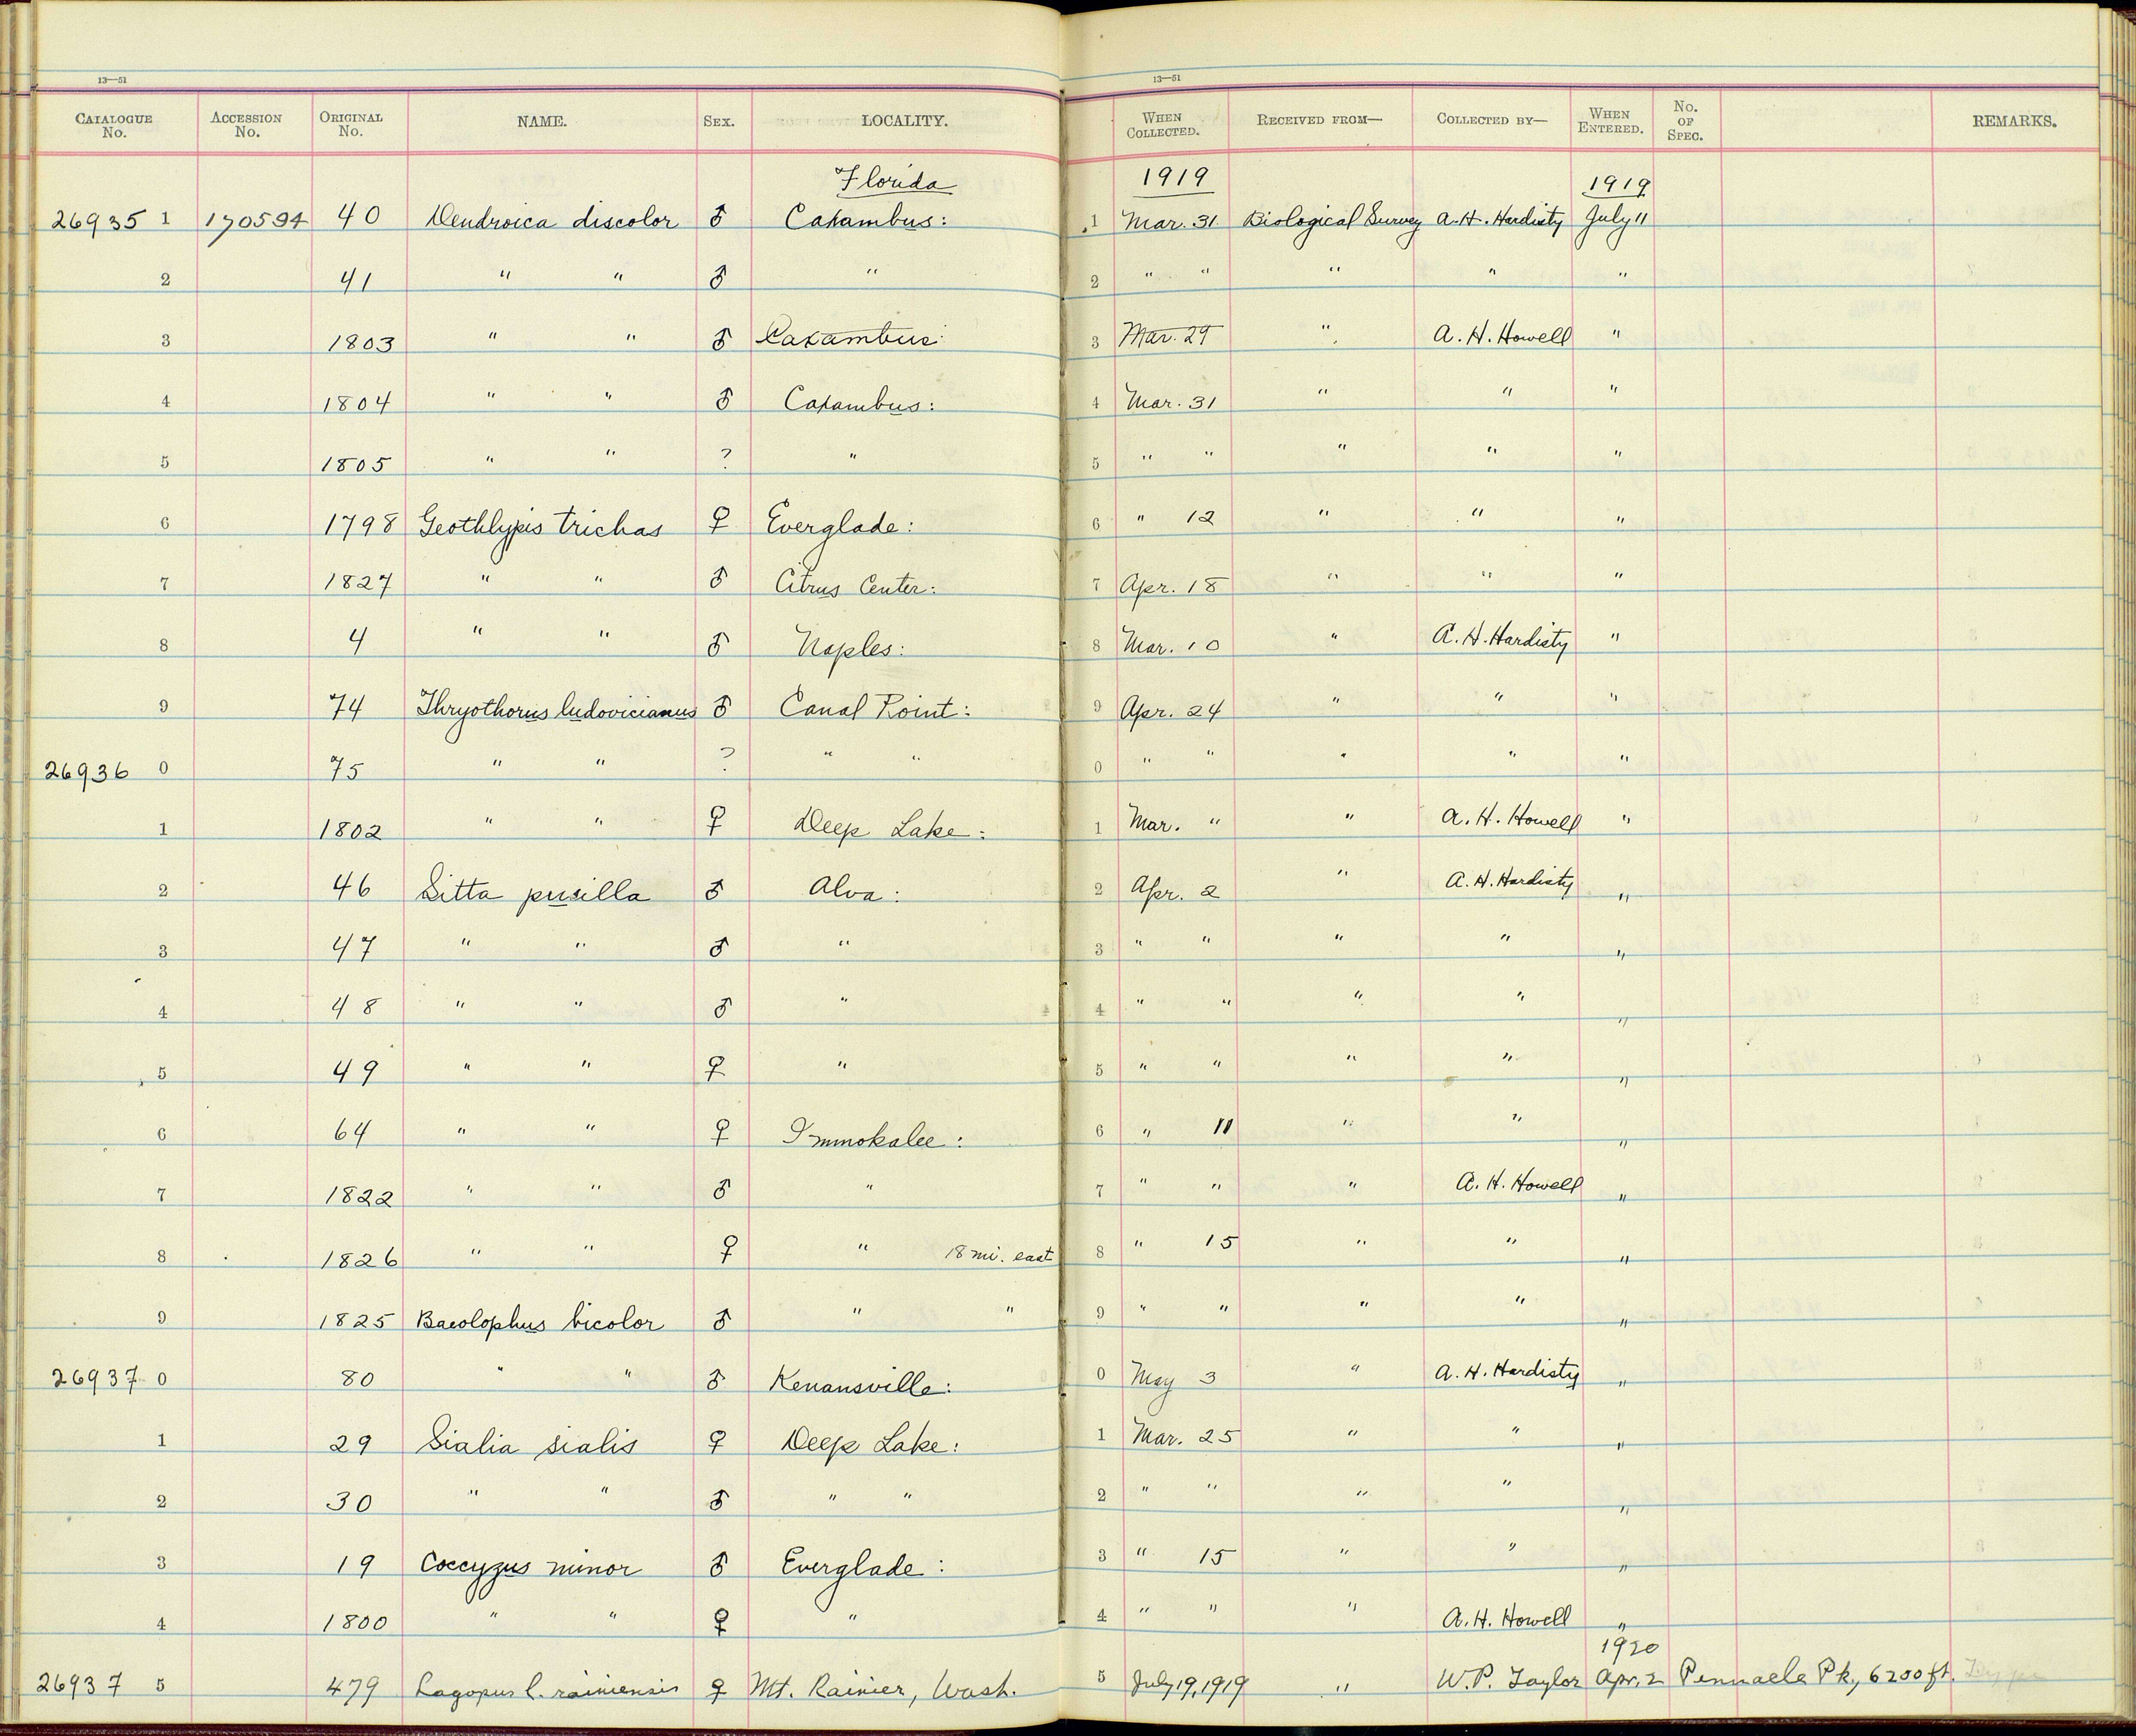 13—51 13—51
CATALOGUE No. ACCESSION No. ORIGINAL No. NAME. SEX. LOCALITY. WHEN COLLECTED. RECEIVED FROM— COLLECTED BY— WHEN ENTERED. No. OF SPEC. REMARKS.
Florida 1919 1919
26935 1 170594 40 Dendroica discolor ♂ Caxambus: 1 Mar. 31 Biological Survey A. H. Hardisty July 11
2 41 " " ♂ " 2 " " " " "
3 1803 " " ♂ Caxambus: 3 Mar. 29 " A. H. Howell "
4 1804 " " ♂ Caxambus: 4 Mar. 31 " " "
5 1805 " " ? " 5 " " " " "
6 1798 Geothlypis trichas ♀ Everglade: 6 " 12 " " "
7 1827 " " ♂ Citrus Center: 7 Apr. 18 " " "
8 4 " " ♂ Naples: 8 Mar. 10 " A. H. Hardisty "
9 74 Thryothorus ludovicianus ♂ Canal Point: 9 Apr. 24 " " "
26936 0 75 " " ? " " 0 " " " " "
1 1802 " " ♀ Deep Lake: 1 Mar. " " A. H. Howell "
2 46 Sitta pusilla ♂ Alva: 2 Apr. 2 " A. H. Hardisty "
3 47 " " ♂ " 3 " " " " "
4 48 " " ♂ " 4 " " " " "
5 49 " " ♀ " 5 " " " " "
6 64 " " ♀ Immokalee: 6 " 11 " " "
7 1822 " " ♂ " 7 " " " A. H. Howell "
8 1826 " " ♀ " 18 mi. east 8 " 15 " " "
9 1825 Baeolophus bicolor ♂ " " 9 " " " " "
26937 0 80 " " ♂ Kenansville: 0 May 3 " A. H. Hardisty "
1 29 Sialia sialis ♀ Deep Lake: 1 Mar. 25 " " "
2 30 " " ♂ " " 2 " " " " "
3 19 Coccyzus minor ♂ Everglade: 3 " 15 " " "
4 1800 " " ♀ " 4 " " " A. H. Howell "
1920
26937 5 479 Lagopus l. rainiensis ♀ Mt. Rainier, Wash. 5 July 19, 1919 " W. P. Taylor Apr. 2 Pennacle Pk, 6200 ft. Type